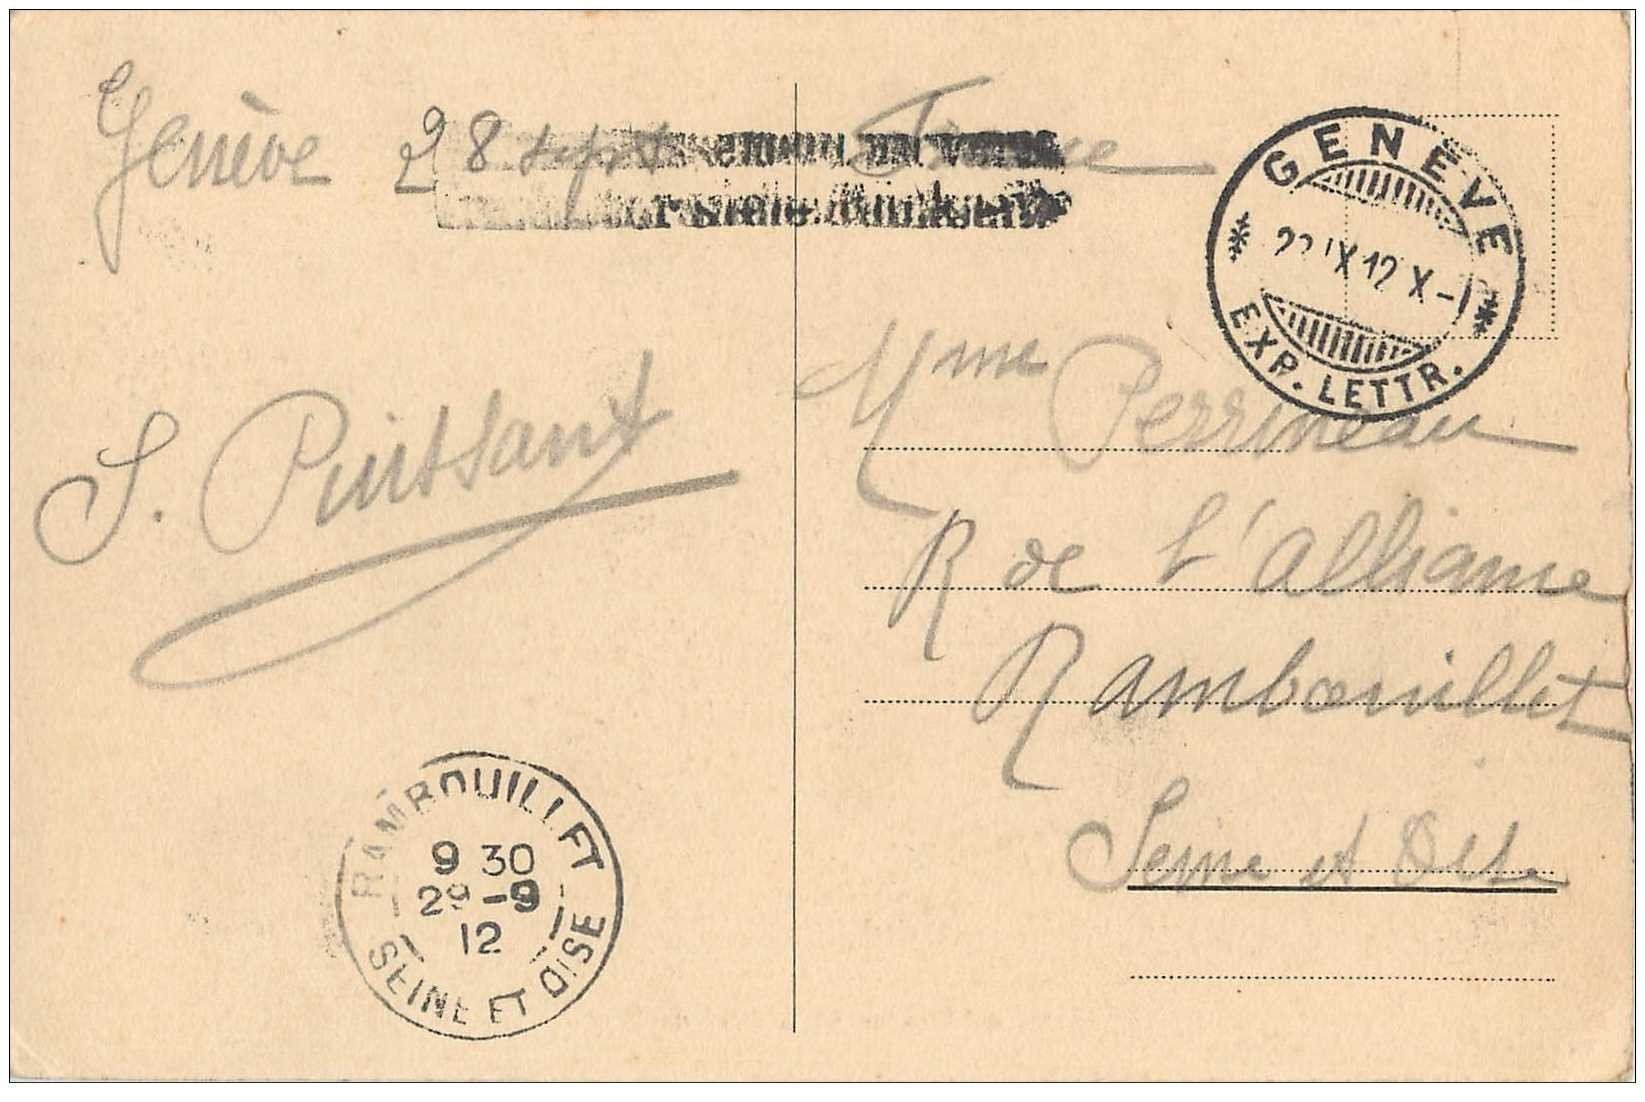 Genève 28 sept
France
GENÈVE
IX 12 X-
EXP. LETTR.
S. Puissant
Mme Perrineau
R de L'alliance
Rambouillet
Seine et Oise
RAMBOUILLET
9 30
29 -9
12
SEINE ET OISE